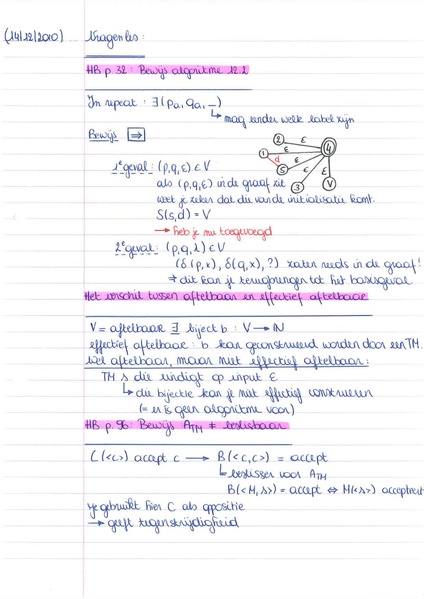 (14/12/2010) ... Vragenles:
HB p 32: Bewijs algoritme 12.2
In repeat: ∃(pa, qa, _)
↳ mag eender welk label zijn
Bewijs ⇒
1e geval: (p,q,ε) ∈ V
als (p,q,ε) in de graaf zit
weet je zeker dat die van de initialisatie komt.
S(s,d) = V
→ heb je nu toegevoegd
2 ε 4
1 ε
d 5 ε
3 ε ε V
2e geval: (p,q,λ) ∈ V
(δ(p,x), δ(q,x), ?) zaten reeds in de graaf!
⇒ dit kan je terugbrengen tot het basisgeval
Het verschil tussen aftelbaar en effectief aftelbaar
V = aftelbaar ∃ biject b: V → ℕ
effectief aftelbaar: b kan geconstrueerd worden door een TM.
wel aftelbaar, maar niet effectief aftelbaar:
TM s die eindigt op input ε
↳ die bijectie kan je niet effectief construeren
(= er is geen algoritme voor)
HB p. 96: Bewijs ATM ≠ beslisbaar
C(<c>) accept c → B(<c,c>) = accept
↳ beslisser voor ATM
B(<M,s>) = accept ⇔ M(<s>) accepteert
je gebruikt hier C als oppositie
→ geeft tegenstrijdigheid